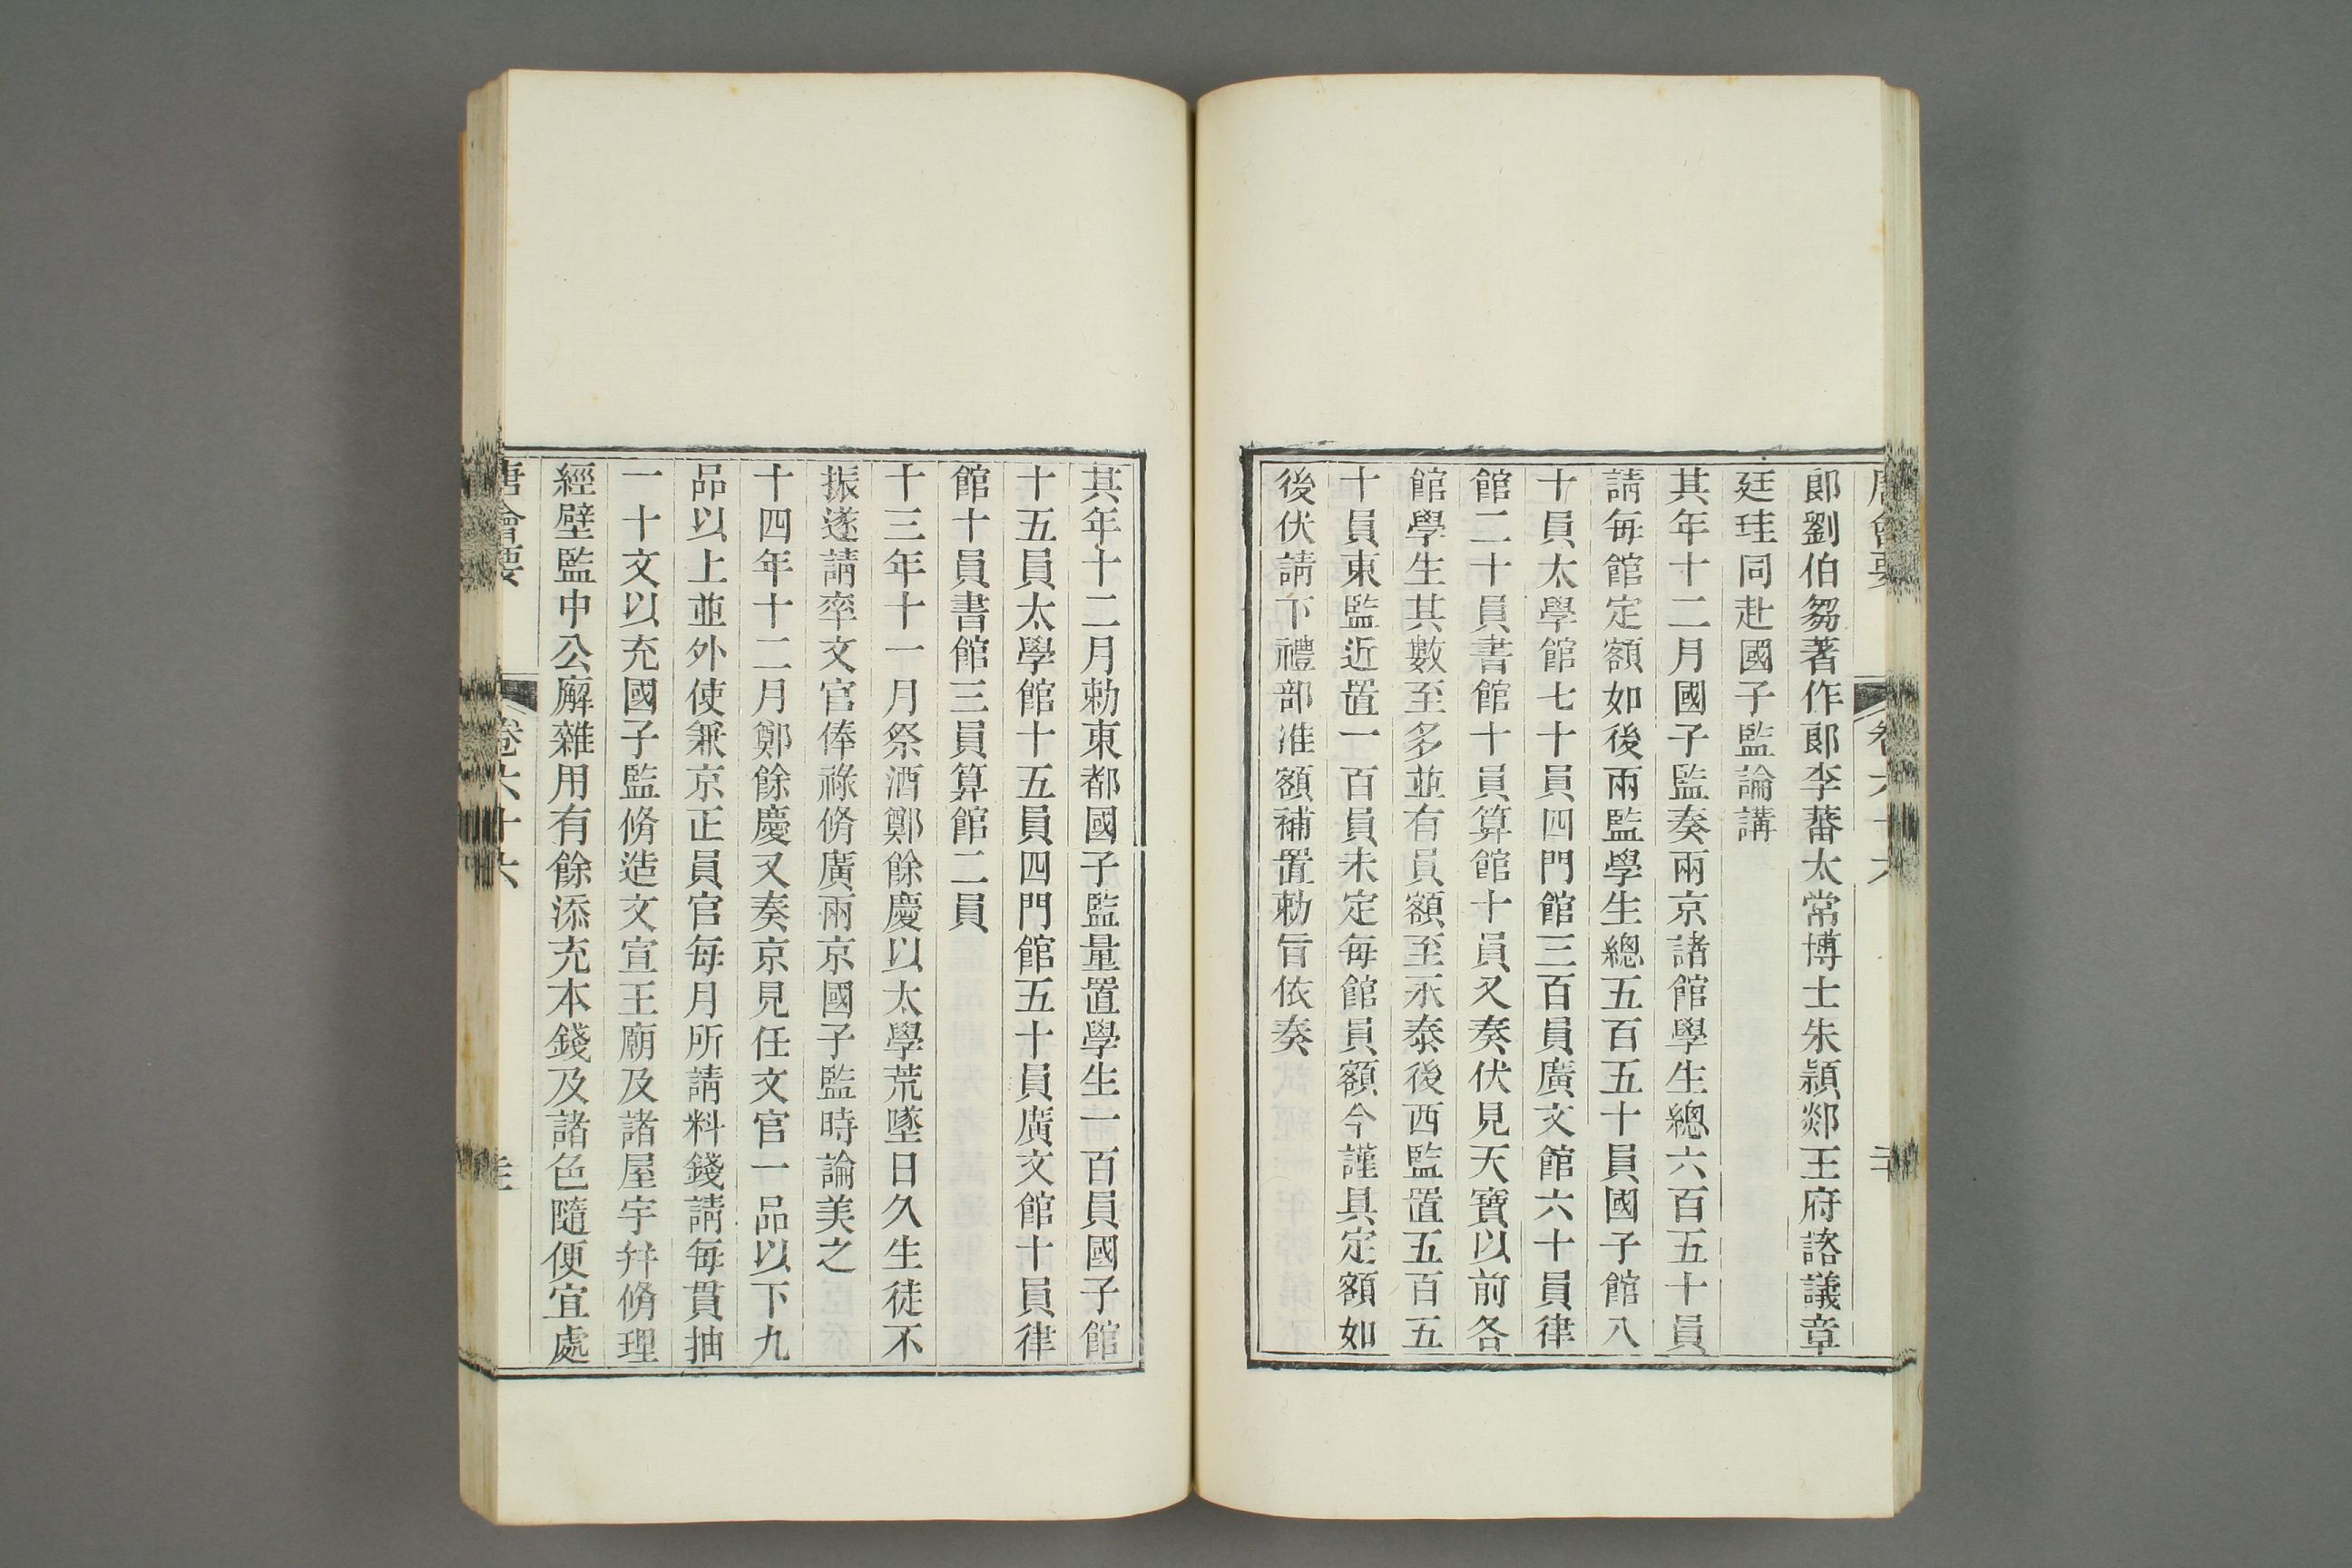 唐會要 卷六十六
郞劉伯芻著作郞李蕃太常博士朱潁郯王府諮議章
廷珪同赴國子監論講
其年十二月國子監奏兩京諸館學生總六百五十員
請每館定額如後兩監學生總五百五十員國子館八
十員太學館七十員四門館三百員廣文館六十員律
館二十員書館十員算館十員又奏伏見天寶以前各
館學生其數至多並有員額至永泰後西監置五百五
十員東監近置一百員未定每館員額今謹具定額如
後伏請下禮部准額補置勅旨依奏
其年十二月勅東都國子監量置學生一百員國子館
十五員太學館十五員四門館五十員廣文館十員律
館十員書館三員算館二員
十三年十一月祭酒鄭餘慶以太學荒墜日久生徒不
振遂請率文官俸祿脩廣兩京國子監時論美之
十四年十二月鄭餘慶又奏京見任文官一品以下九
品以上並外使兼京正員官每月所請料錢請每貫抽
一十文以充國子監脩造文宣王廟及諸屋宇幷脩理
經壁監中公廨雜用有餘添充本錢及諸色隨便宜處
唐會要 卷六十六